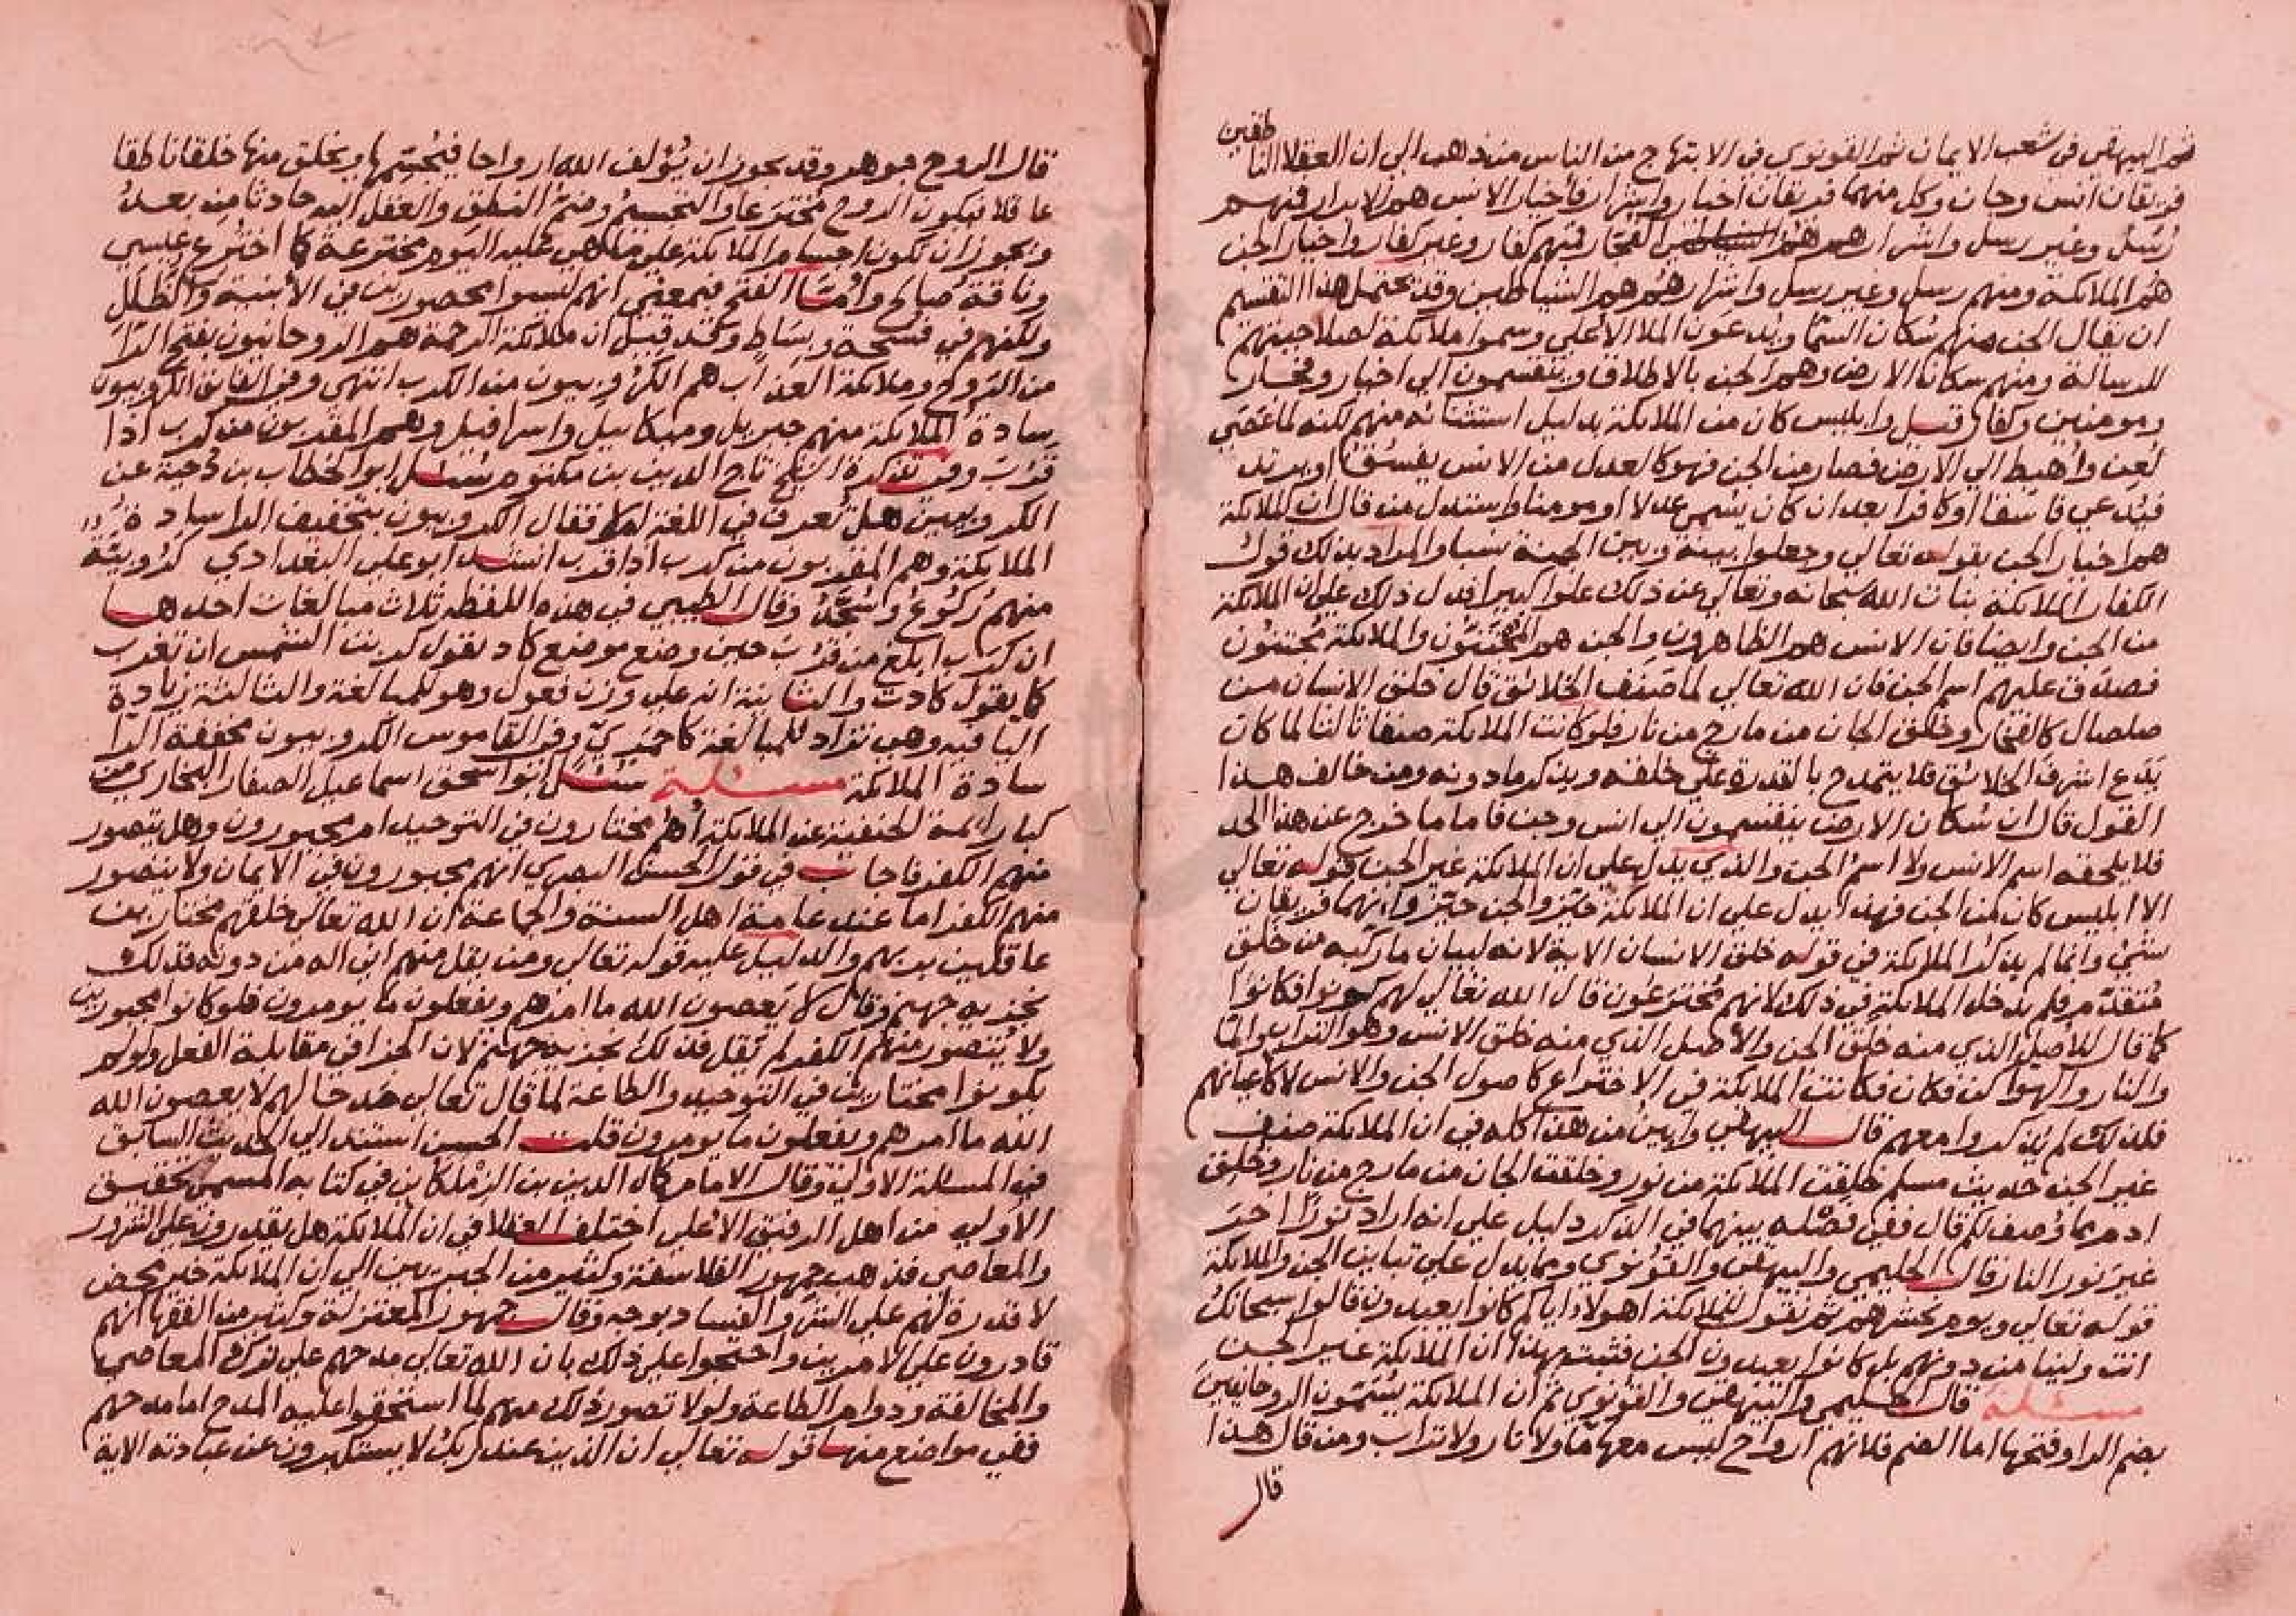 ثم البيهقي في شعب الايمان ثم القونوي في الابتهاج من الناس من ذهب الي ان العقلا الناطقين
فريقان انس وجان وكل منهما فريقان اخيار واشرار فاخيار الانس هم الابرار فمنهم
رُسُل وغير رسل واشرارهم هم الفجار فمنهم كفار وغير كفار واخيار الجن
هُم الملائكة ومنهم رسل وغير رسل واشرارهُم هم الشياطين وقد يحتمل هذا التقسيم
ان يقال الجن منهم سُكان السمآ ويدعون الملا الأعلي وسموا ملائكة لصلاحيتهم
للرسالة ومنهم سكان الارض وهم الجن بالاطلاق وينقسمون الي اخيار وفجار
ومومنين وكفار قيل وابليس كان من الملائكة بدليل استثنائه منهم لكنه لما عَصَي
لُعِن وأُهبط الي الارض فصار من الجن فهو كالعدل من الانس يفسُق او يرتد
فيُدعي فاسقا او كافرا بعد ان كان يُسمي عدلا او مومنا واستدل من قال ان الملائكة
هم اخيار الجن بقوله تعالي وجعلوا بينه وبين الجنة نسبا والمراد بذلك قول
الكفار الملائكة بنات الله سبحانه وتعالي عن ذلك علوا كبيرا فدل ذلك علي ان الملائكة
من الجن وايضا فان الانس هم الظاهرون والجن هم المُجتَنّون والملائكة مُجتنّون
فصدق عليهم اسم الجن فان الله تعالي لما صَنف الخلائق قال خلق الانسان من
صلصال كالفخار وخلق الجان من مارج من نار فلو كانت الملائكة صنفا ثالثا لما كان
يَدَع اشرف الخلائق فلا يتمدح بالقدرة علي خلقه ويذكر ما دونه ومن خالف هذا
القول قال ان سُكان الارض ينقسمون الي انس وجن فاما ما خرج عن هذا الحد
فلا يلحقه اسم الانس ولا اسم الجن والذي يدل علي ان الملائكة غير الجن قوله تعالي
الا ابليس كان من الجن فهذا يدل علي ان الملائكة حيّز والجن حيّز وانهما فريقان
شتي وانما لم يذكر الملائكة في قوله خلق الانسان الاية لانه لبيان ما ركبه من خلق
مُتقدّم فلم يدخل الملائكة في ذلك لانهم مُخترَعُون قال الله تعالي لهم كونوا فكانوا
كما قال للاصل الذي منه خلق الجن والأصل الذي منه خلق الانس وهو التراب والمآ
والنار والهوا كن فكان فكانت الملائكة في الاختراع كاصول الجن والانس لا كاعيانهم
فلذلك لم يذكروا معهم قال البيهقي وأبين من هذا كله في ان الملائكة صنف
غير الجن حديث مسلم خلقت الملائكة من نور وخلقت الجان من مارج من نار وخلق
ادم مما وُصف لكم قال ففي فصله بينهما في الذكر دليل علي انه اراد نورًا اخر
غير نور النار قال الحليمي والبيهقي والقونوي ومما يدل علي تباين الجن والملائكة
قوله تعالي ويوم يحشرهم ثم يقول للملائكة اهولاء اياكم كانوا يعبدون قالوا سبحانك
انت ولينا من دونهم بل كانوا يعبدون الجن فثبت بهذا ان الملائكة غير الجن
مسئلة قال الحليمي والبيهقي والقونوي ثم ان الملائكة يسمّون الروحانيين
بضم الرا وفتحها اما الضم فلانهم ارواح ليس معها مآ ولا نار ولا تراب ومن قال هذا
قال
قال الروح جوهر وقد يجوز ان يُؤلف الله ارواحا فيُجسّمها ويخلق منها خلقا ناطقا
عاقلا فيكون الروح مُخترعا والتجسيمُ وضمُّ النطق والعقل اليه حادثا من بعدُ
ويجوز ان تكون اجسام الملائكة علي ما هي عليه اليوم مخترعة كما اختُرع عيسي
وناقةُ صالح وأما الفتح فبمعني انهم ليسوا محصورين في الأبنية والظُلل
ولكنهم في فُسحة وبِسَاطٍ وقد قيل ان ملائكة الرحمة هم الروحانيون بفتح الرآ
من الرَوح وملائكة العذاب هم الكرُوبيون من الكرب انتهي وفي الفائق الكروبيون
سادةُ الملائكة منهم جبريل وميكائيل واسرافيل وهم المقربون من كرب اذا
قرُبَ وفي تذكرة الشيخ تاج الدين بن مكتوم سئل ابو الخطاب بن دحية عن
الكروبيين هل تُعرف في اللغة ام لا فقال الكروبيون بتخفيف الرا سادةُ
الملائكة وهم المقربون من كرب اذا قرب انشد ابو علي البغدادي كرُوبيّة
منهم رُكُوعٌ وسُجّدُ وقال الطيبي في هذه اللفظه ثلاث مبالغات احدها
ان كَرَب ابلغ من قَرُبَ حين وضع موضع كاد يقول كربت الشمس ان تغرب
كما يقول كادت والثانية انه علي وزن فعول وهو للمبالغة والثالثة زيادة
اليا فيه وهي تزاد للمبالغة كاحمَرِيّ وفي القاموس الكروبيون مخففة الرآ
سادة الملائكة مسئلة سئل ابو اسحق اسماعيل الصفار البخاري من
كبار ايمة الحنفية عن الملائكة أهم مختارون في التوحيد ام مجبورون وهل يتصور
منهم الكفر فاجاب في قول الحسن البصري انهم مجبورون في الايمان ولا يتصور
منهم الكفر اما عند عامة اهل السنة والجماعة ان الله تعالي خلقهم مختارين
عاقلين بربهم والدليل عليه قوله تعالي ومن يقل منهم اني اله من دونه فذلك
نجزيه جهنم وقال لا يَعصون الله ما امرهم ويفعلون ما يومرون فلو كانوا مجبورين
ولا يُتصور منهم الكفر لم يَقل فذلك نجزيه جهنم لان الجزا في مقابلة الفعل ولو لم
يكونوا مختارين في التوحيد والطاعة لما قال تعالي مَدحا لهم لا يعصون الله
الله ما امرهم ويفعلون ما يومرون قلت الحسن استند الي الحديث السابق
في المسئلة الاولي وقال الامام كمال الدين بن الزملكاني في كتابه المسمي تحقيق
الأولي من اهل الرفيق الاعلي اختلف العقلا في ان الملائكة هل يقدرون علي الشرور
والمعاصي فذهب جمهور الفلاسفة وكثير من الجبريين الي ان الملائكة خير محض
لا قدرة لهم علي الشر والفساد بوجه وقال جمهور المعتزلة وكثير من الفقها انهم
قادرون علي الامرين واحتجوا علي ذلك بان الله تعالي مدحهم علي ترك المعاصي
والمخالفة ودوام الطاعة ولولا تصور ذلك منهم لما استحقوا عليه المدح اما مدحهم
ففي مواضع منها قوله تعالي ان الذين عند ربك لا يستكبرون عن عبادته الاية